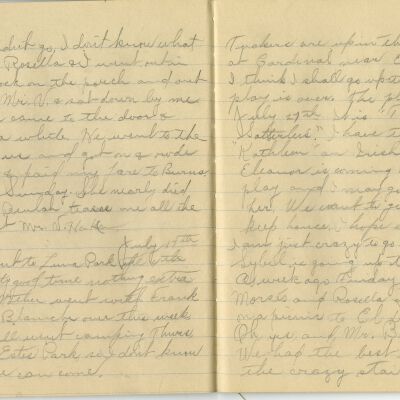 didn't go, I don't know what
Rosella & I went out in
on the porch and out
Mr. V. & sat down by me
came to the door &
a while. We went to the
and got on & rode
& paid my fare to Burns
Sunday. She nearly died
Beulah teases me all the
Mr. V.
July 17th
to Luna Park
good time nothing extra
Mother went with Frank
Blanch over this week
went camping Thurs
Estes Park so I don't know
can come.
are up in the
at Gardinas near E
I think I shall go up to
play is over. The pl
July 27th. It is "T
I have t
"Kathleen" an Irish
Eleanor is coming
play and I may go
her. We want to go
keep house. I hope
I am just crazy to go.
Sybil is going up t
A week ago Sunday
Morses and Rosella
on a picnic to El D
Oh yes and Mr. B
We had the best
the crazy stai